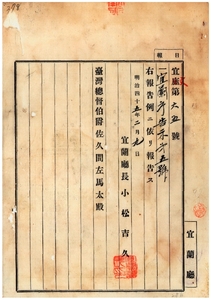 報
宜庶第六五號
一宜蘭廳告示第五號
右報告例ニ依リ報告ス
明治四十五年二月九日
宜蘭廳長小松吉久
臺灣總督伯爵佐久間左馬太殿
宜蘭廳